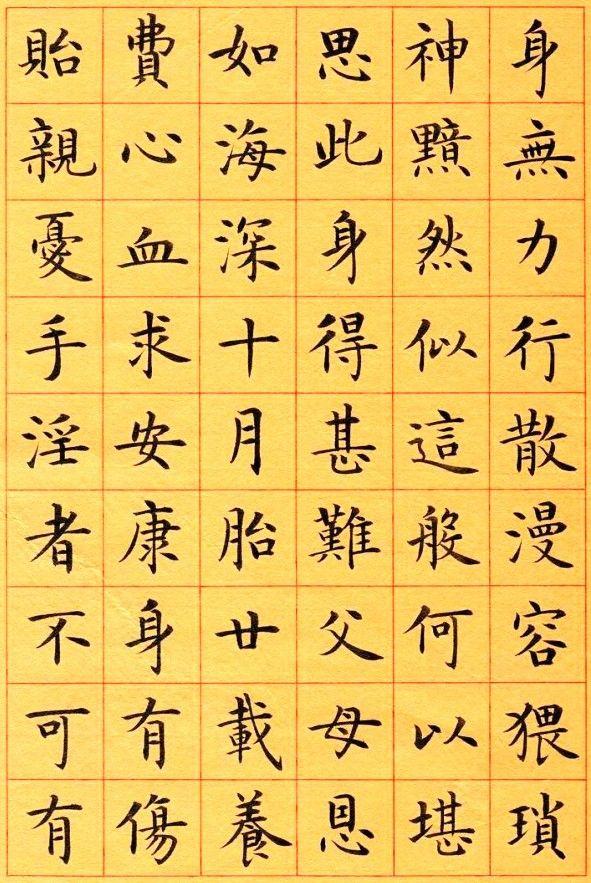 身無力行散漫容猥瑣
神黯然似這般何以堪
思此身得甚難父母恩
如海深十月胎廿載養
費心血求安康身有傷
貽親憂手淫者不可有